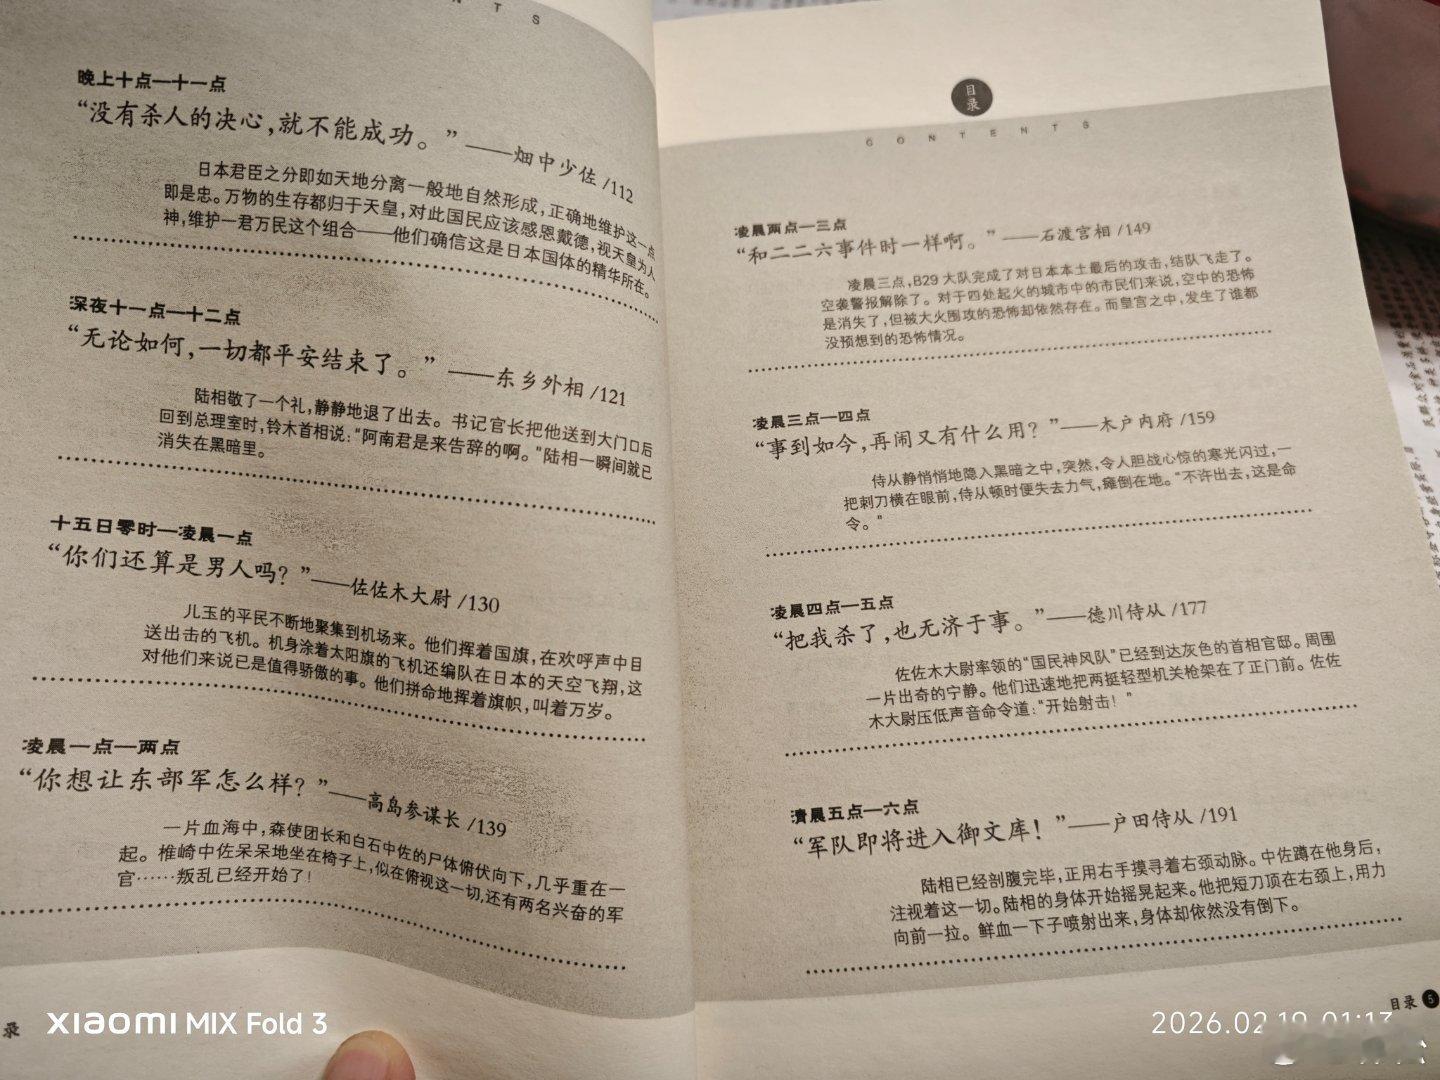 N T S
晚上十点—十一点
“没有杀人的决心,就不能成功。”——畑中少佐 /112
日本君臣之分即如天地分离一般地自然形成，正确地维护这一点
即是忠。万物的生存都归于天皇，对此国民应该感恩戴德，视天皇为人
神，维护一君万民这个组合——他们确信这是日本国体的精华所在。
深夜十一点—十二点
“无论如何,一切都平安结束了。”——东乡外相 /121
陆相敬了一个礼，静静地退了出去。书记官长把他送到大门口后
回到总理室时，铃木首相说：“阿南君是来告辞的啊。”陆相一瞬间就已
消失在黑暗里。
十五日零时—凌晨一点
“你们还算是男人吗？”——佐佐木大尉 /130
儿玉的平民不断地聚集到机场来。他们挥着国旗，在欢呼声中目
送出击的飞机。机身涂着太阳旗的飞机还编队在日本的天空飞翔，这
对他们来说已是值得骄傲的事。他们拼命地挥着旗帜，叫着万岁。
凌晨一点—两点
“你想让东部军怎么样？”——高岛参谋长 /139
一片血海中，森使团长和白石中佐的尸体俯伏向下，几乎重在一
起。椎崎中佐呆呆地坐在椅子上，似在俯视这一切，还有两名兴奋的军
官……叛乱已经开始了！
录
目录
CONTENTS
凌晨两点—三点
“和二二六事件时一样啊。”——石渡宫相 /149
凌晨三点，B29 大队完成了对日本本土最后的攻击，结队飞走了。
空袭警报解除了。对于四处起火的城市中的市民们来说，空中的恐怖
是消失了，但被大火围攻的恐怖却依然存在。而皇宫之中，发生了谁都
没预想到的恐怖情况。
凌晨三点—四点
“事到如今,再闹又有什么用？”——木户内府 /159
侍从静悄悄地隐入黑暗之中，突然，令人胆战心惊的寒光闪过，一
把刺刀横在眼前，侍从顿时便失去力气，瘫倒在地。“不许出去，这是命
令。”
凌晨四点—五点
“把我杀了,也无济于事。”——德川侍从 /177
佐佐木大尉率领的“国民神风队”已经到达灰色的首相官邸。周围
一片出奇的宁静。他们迅速地把两挺轻型机关枪架在了正门前。佐佐
木大尉压低声音命令道：“开始射击！”
清晨五点—六点
“军队即将进入御文库！”——户田侍从 /191
陆相已经剖腹完毕，正用右手摸寻着右颈动脉。中佐蹲在他身后，
注视着这一切。陆相的身体开始摇晃起来。他把短刀顶在右颈上，用力
向前一拉。鲜血一下子喷射出来，身体却依然没有倒下。
目录 5
XIAOMI MIX Fold 3
2026.02.19 01:13